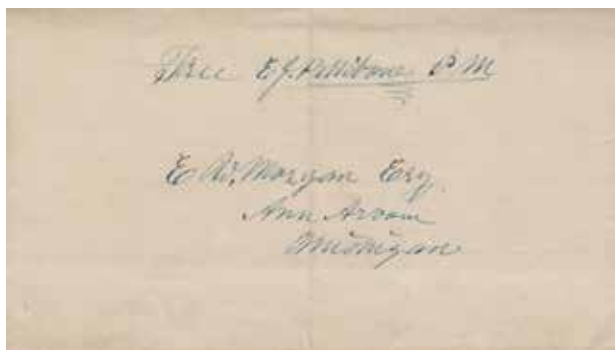 Free E.J. Pettibone P M
E W. Morgan Esq.
Ann Arbour
Michigan